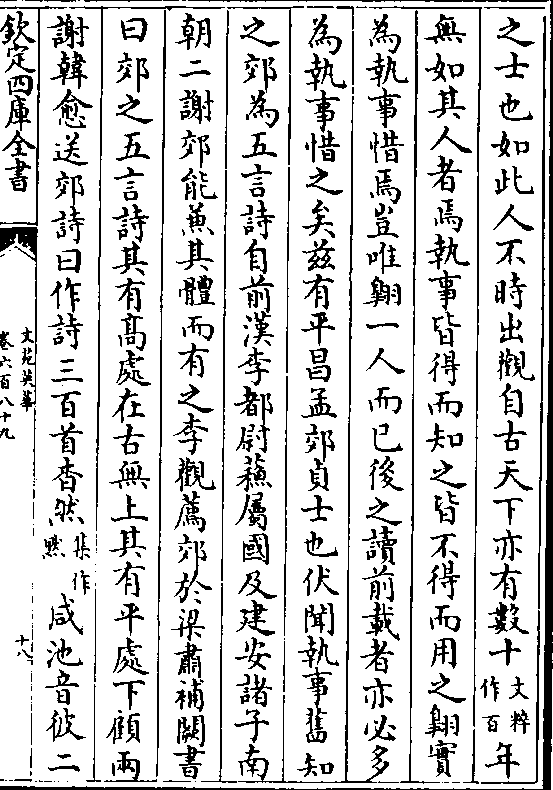 之士也如此人不時出觀自古天下亦有數十文粹作百年
無如其人者焉執事皆得而知之皆不得而用之翺實
為執事惜焉豈唯翺一人而已後之讀前載者亦必多
為執事惜之矣兹有平昌孟郊貞士也伏聞執事舊知
之郊為五言詩自前漢李都尉蘇屬國及建安諸子南
朝二謝郊能兼其體而有之李觀薦郊於梁肅補闕書
曰郊之五言詩其有髙處在古無上其有平處下顧兩
謝韓愈送郊詩曰作詩三百首杳然集作黙咸池音彼二
欽定四庫全書
文苑英華
卷六百八十九
十八